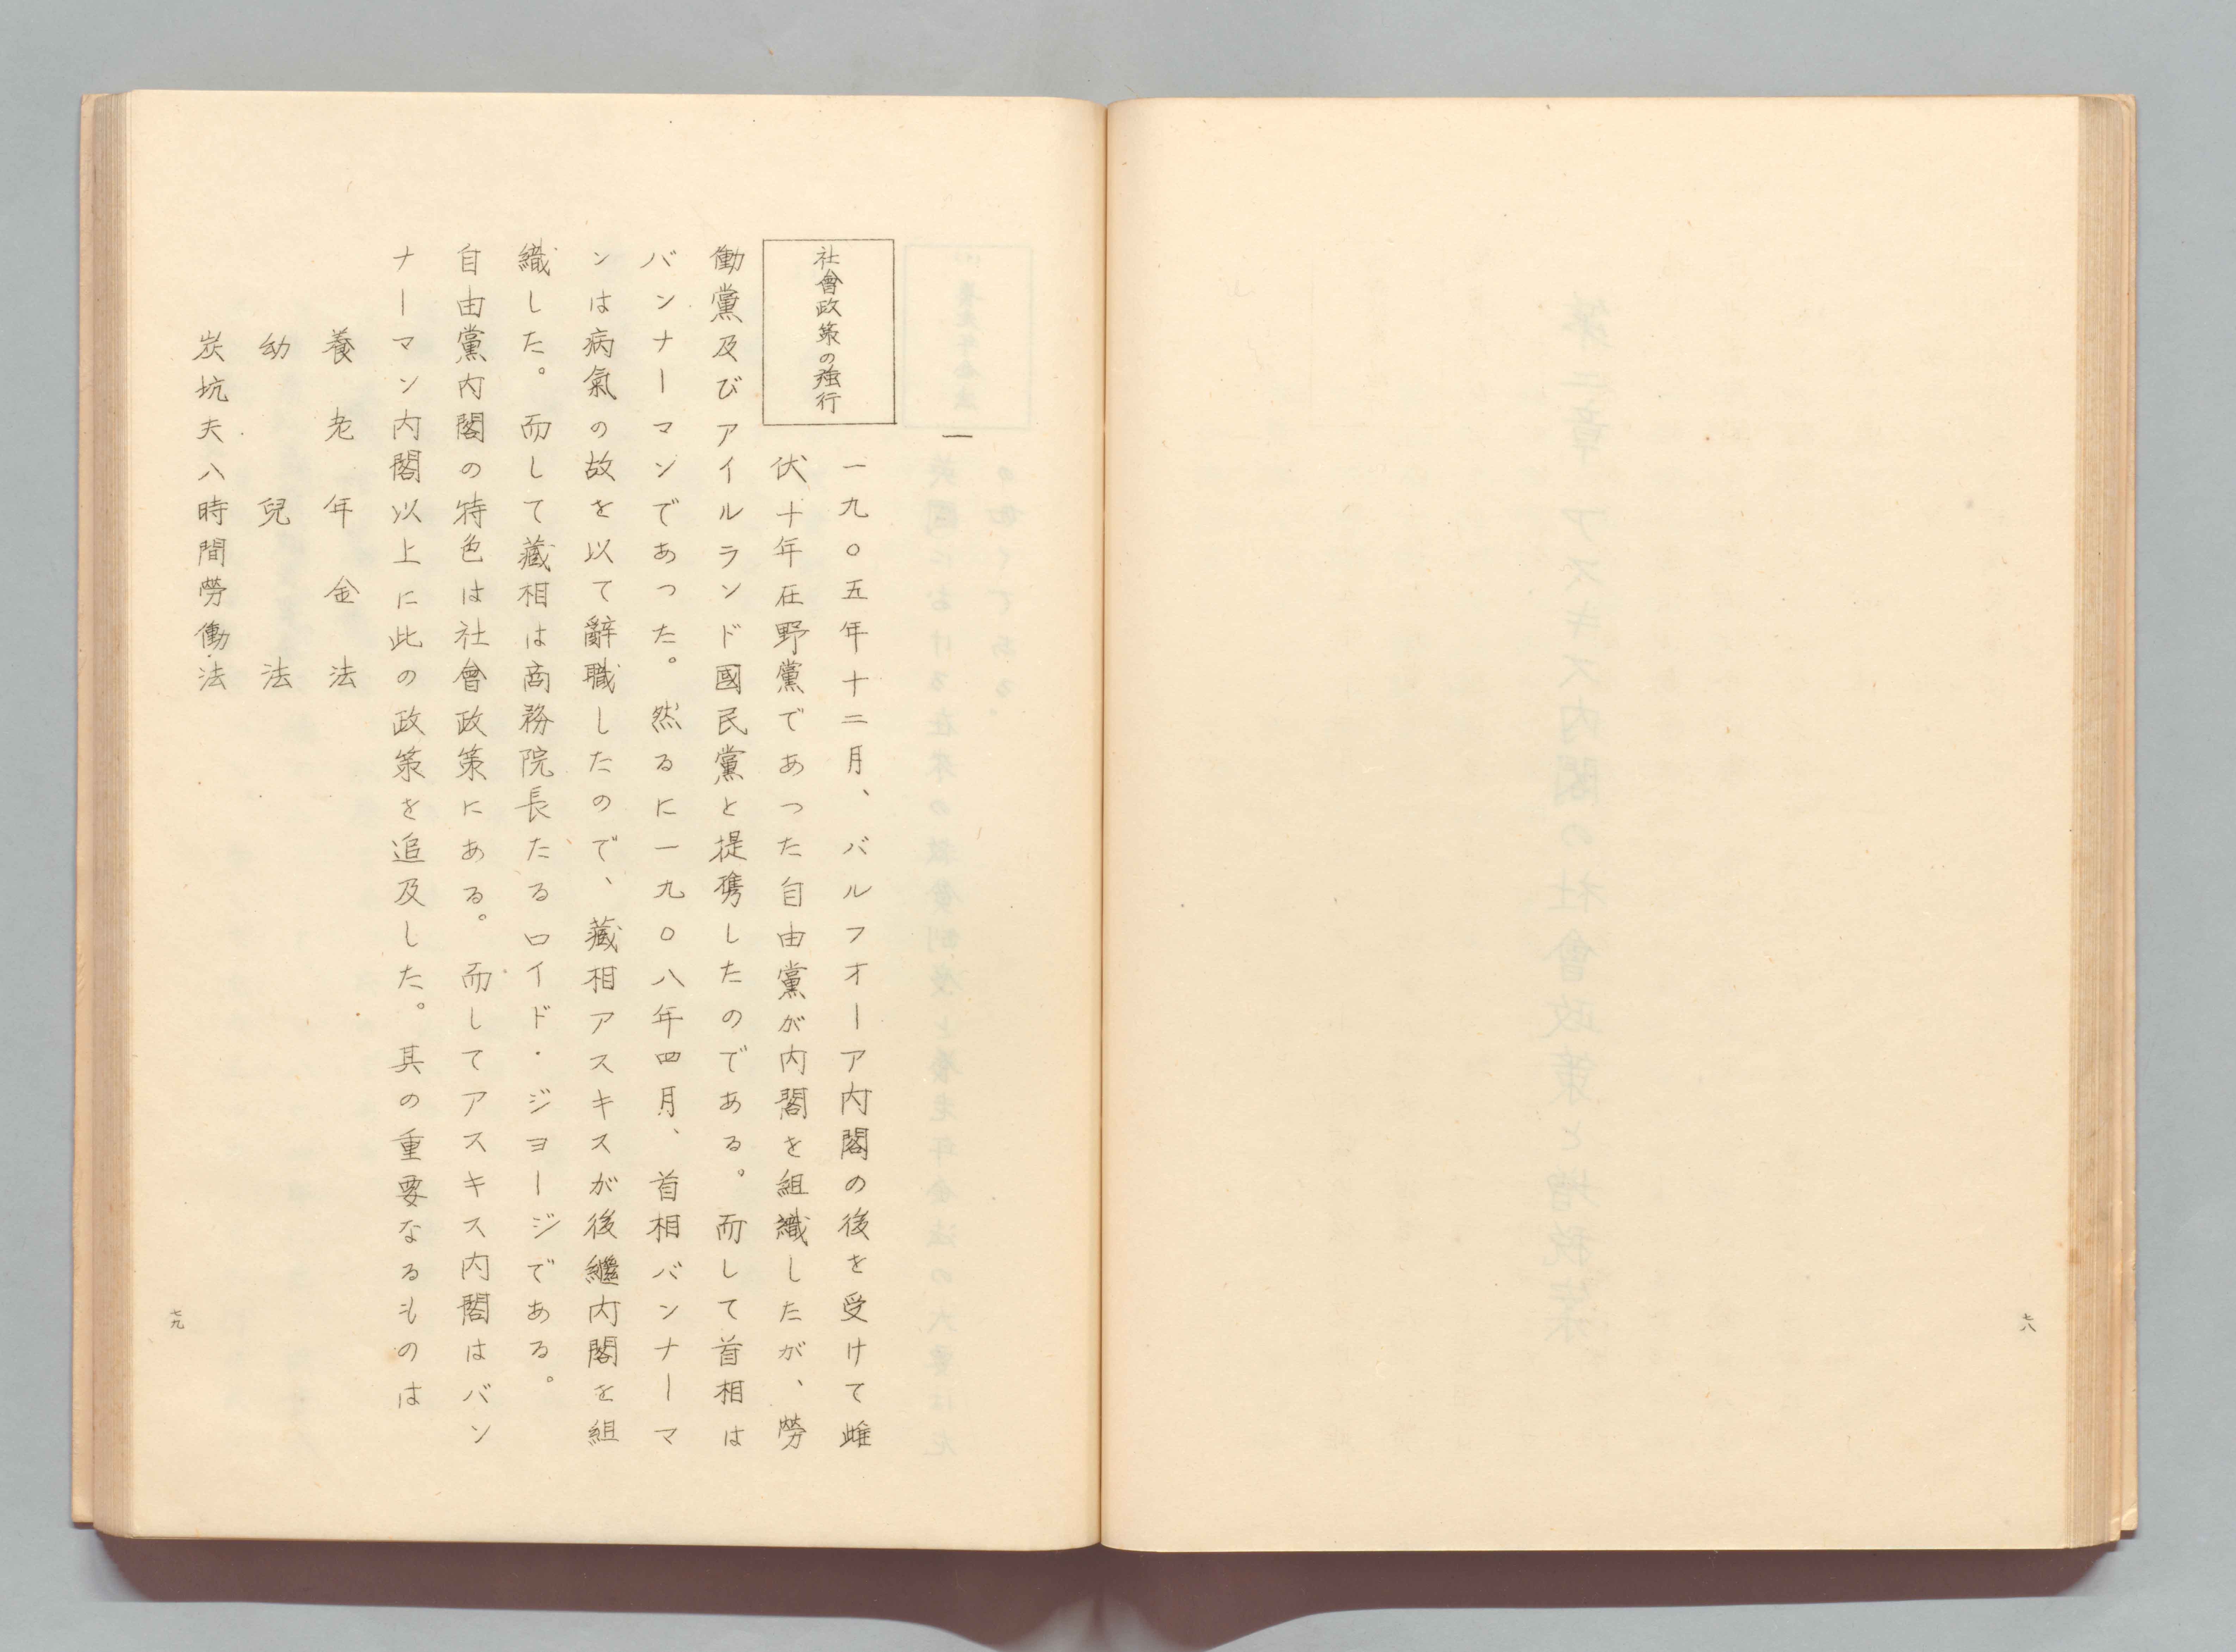 七八
一
社會政策の強行
一九〇五年十二月、バルフオーア内閣の後を受けて雌
伏十年在野黨であった自由黨が内閣を組織したが、勞
働黨及びアイルランド國民黨と提携したのである。而して首相は
バンナーマンであった。然るに一九〇八年四月、首相バンナーマ
ンは病氣の故を以て辭職したので、藏相アスキスが後繼内閣を組
織した。而して藏相は商務院長たるロイド・ジヨージである。
自由黨内閣の特色は社會政策にある。而してアスキス内閣はバン
ナーマン内閣以上に此の政策を追及した。其の重要なるものは
養老年金法
幼兒法
炭坑夫八時間勞働法
七九